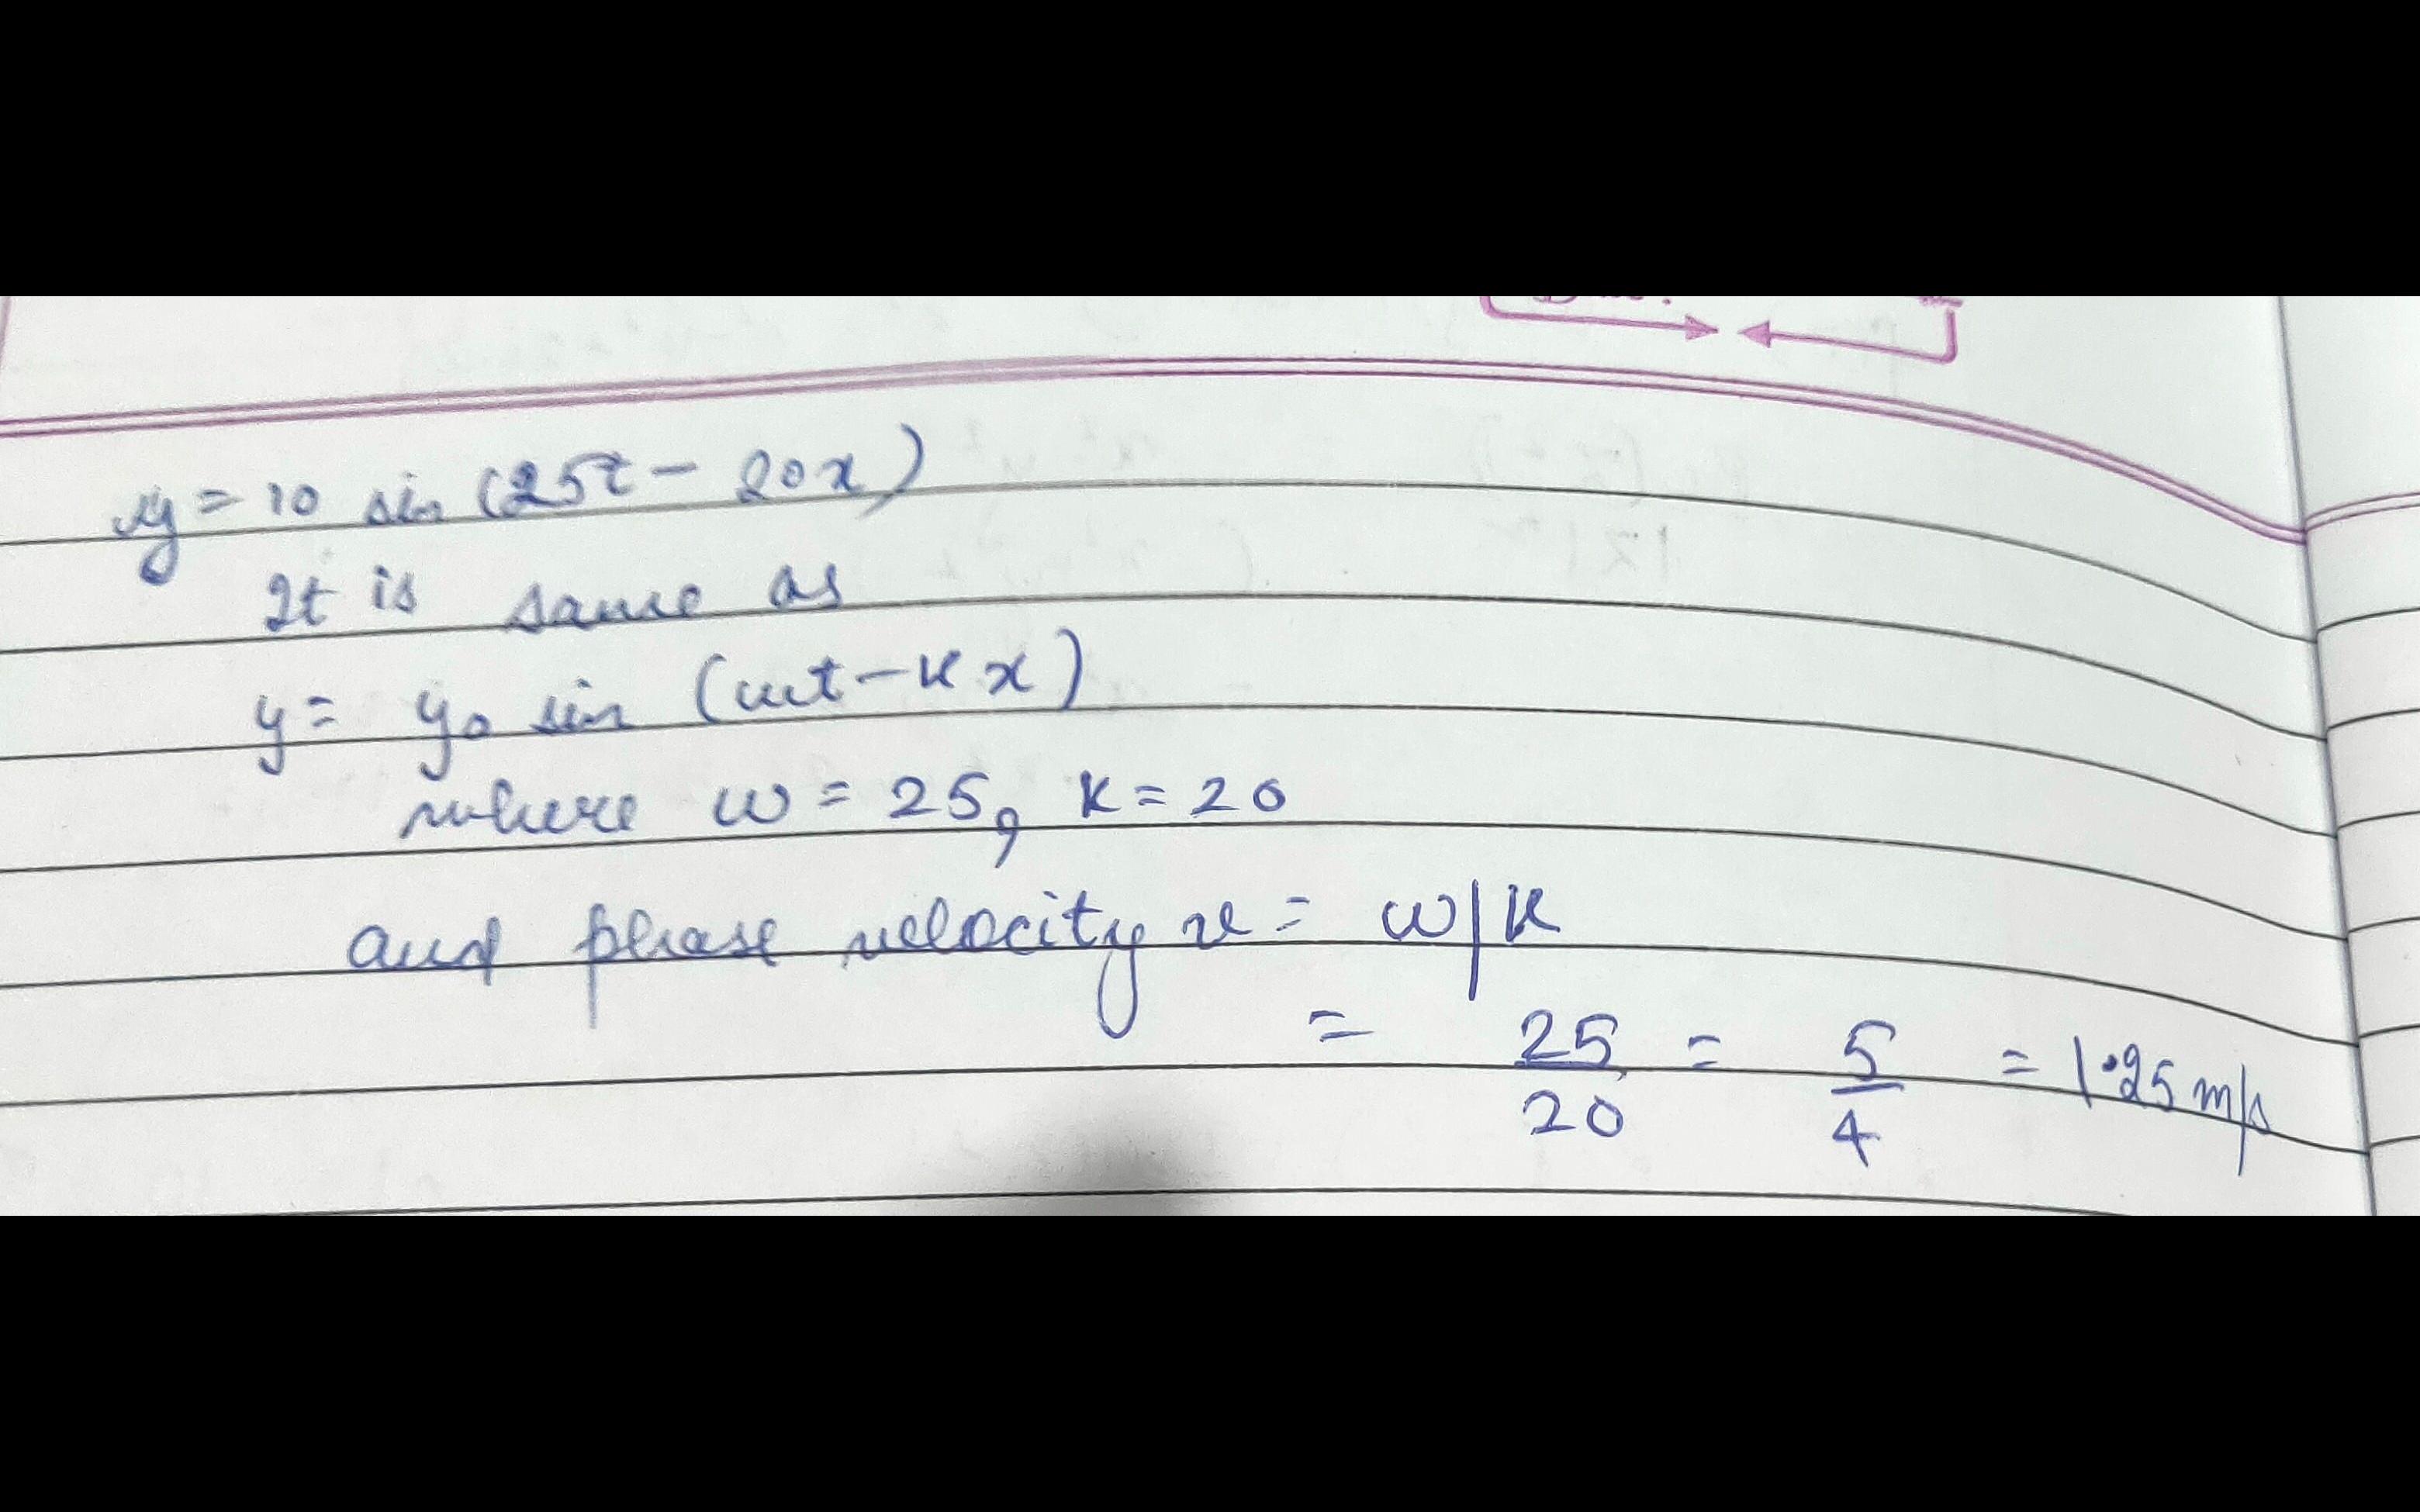 y = 10 sin (25t - 20x)
It is same as
y = y₀ sin (wt - kx)
where w = 25, k = 20
and phase velocity v = w/k
= 25/20 = 5/4 = 1.25 m/s